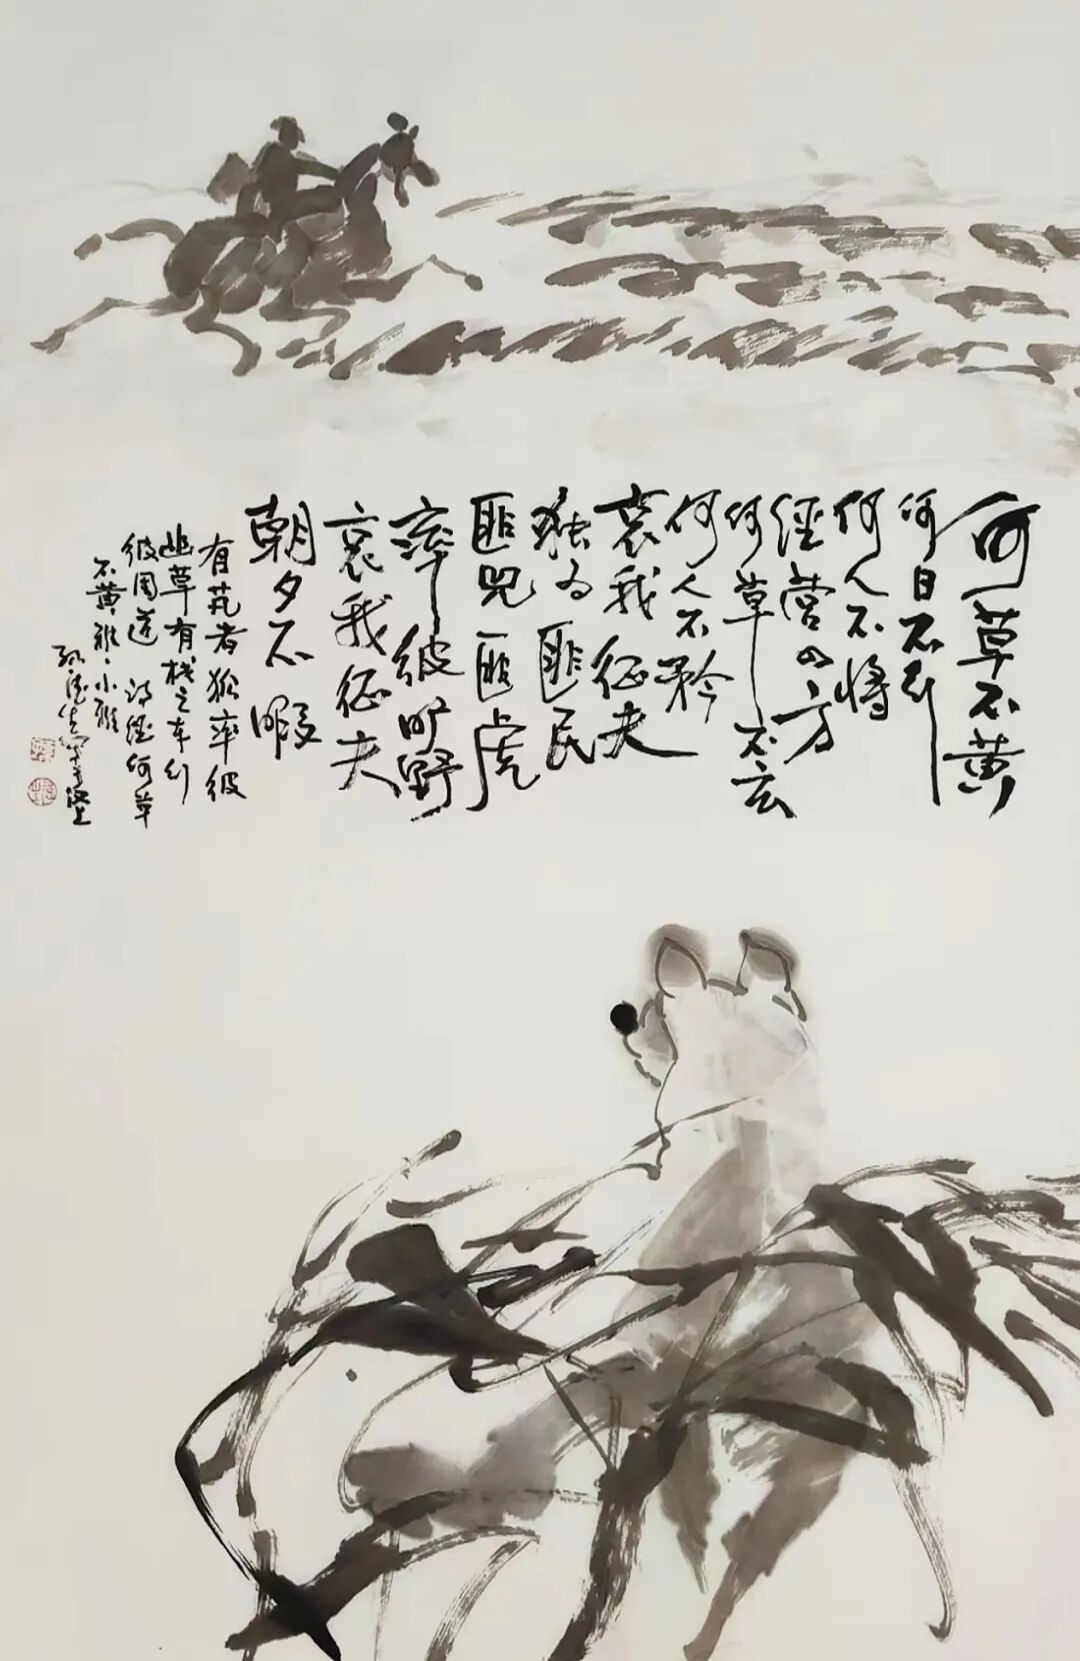 何草不黄
何日不行
何人不将
经营四方
何草不玄
何人不矜
哀我征夫
独为匪民
匪兕匪虎
率彼旷野
哀我征夫
朝夕不暇
有芃者狐率彼
幽草有栈之车行
彼周道 诗经何草
不黄雅小雅